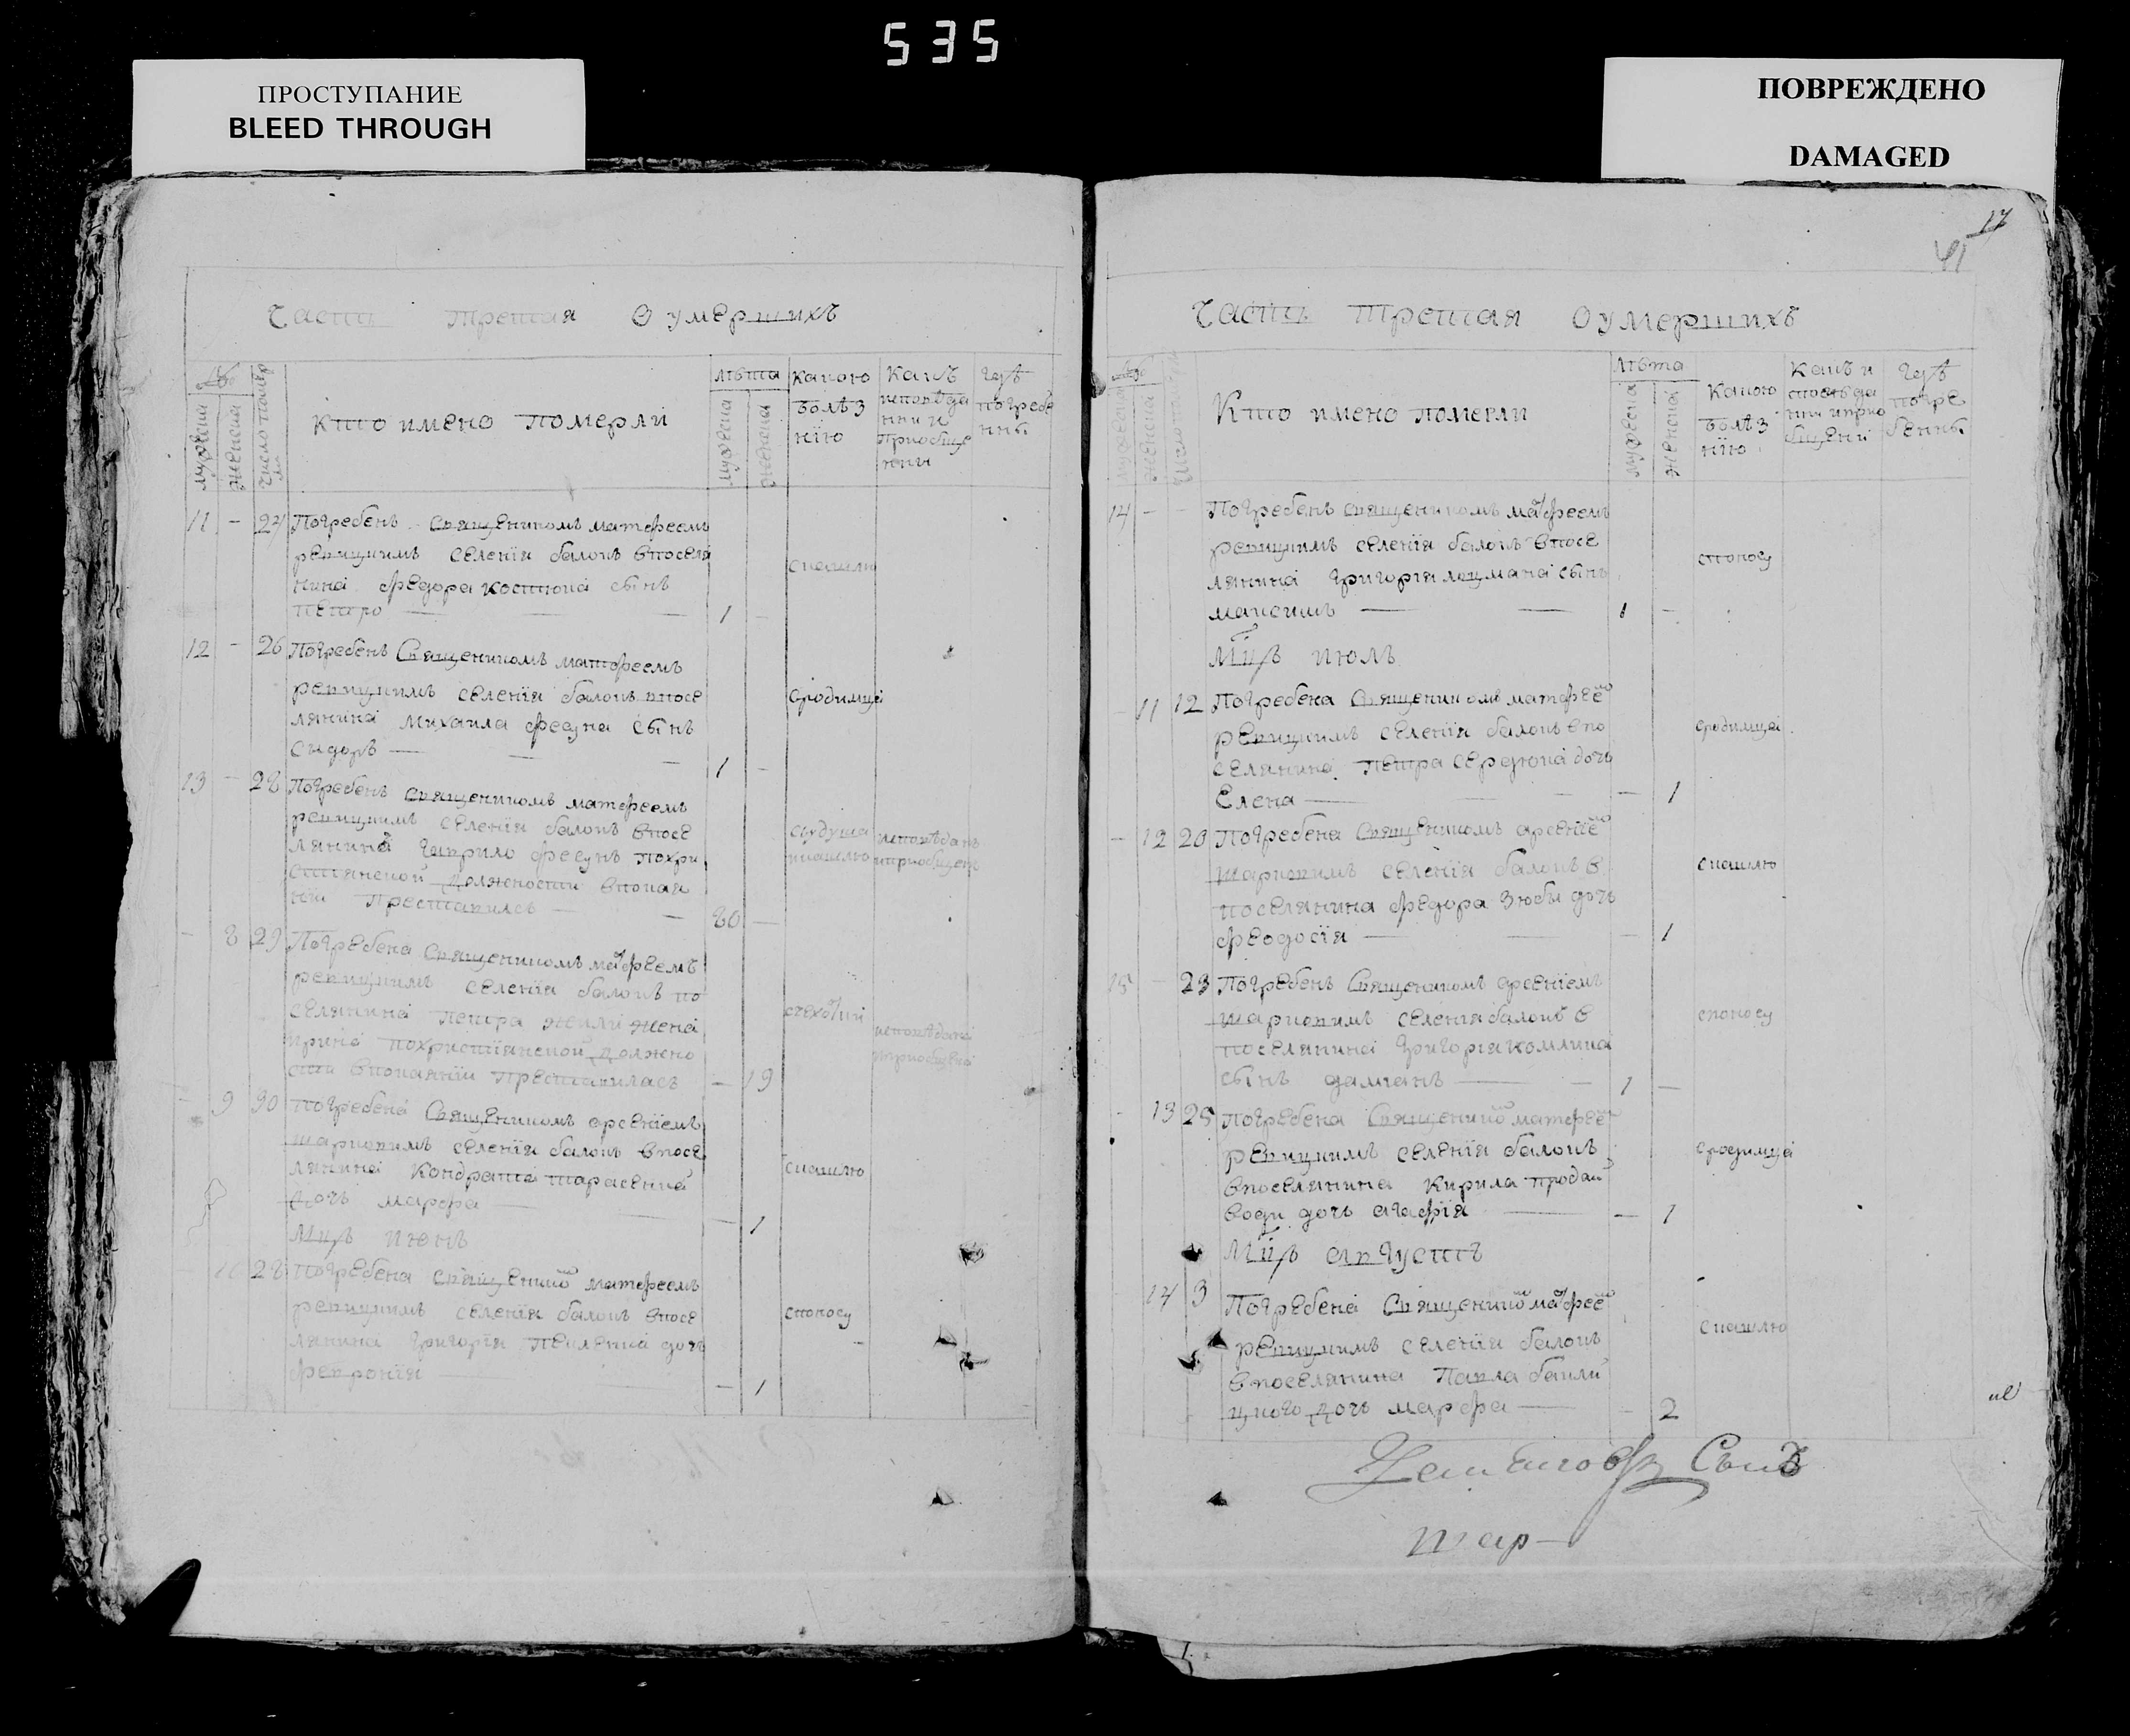 535
ПРОСТУПАНИЕ
BLEED THROUGH
ПОВРЕЖДЕНО
DAMAGED
17
41
Часть третая О умершихъ
мужеска
женска
Число помер
Кто имено померли
лѣта
мужеска
женска
Какою
болѣз
нїю
Какъ
исповѣда
ни и
приобще
ны
гдѣ
погребе
нны
11 - 24 Погребенъ Священикомъ матфеемъ
ревицкимъ селенїя балокъ впоселя
нина федора костюка сынъ
петро — 1 -
скашлю
12 - 26 Погребенъ Священикомъ матфеемъ
ревицкимъ селенїя балокъ впосе
лянина михаила фесуна сынъ
сыдоръ — 1 -
сродимца
13 - 28 Погребенъ Священикомъ матфеемъ
ревицкимъ селенїя балокъ впосе
лянина гаврило фесунъ похри
стїянской должности впокая
нїи преставилсь — 80 —
исповѣданъ
иприобщенъ
- 8 29 Погребена Священикомъ матфеемъ
ревицкимъ селенїя балокъ по
селянина петра жили жена
ирина похристїянской должно
сти впокаянїи преставилась — 19
исповѣдана
иприобщена
- 9 30 Погребена Священикомъ арсенїемъ
шариовимъ селенїя балокъ впосе
лянина Кондрата тарасенка
дочь марфа — 1
скашлю
Мцъ июнь
- 10 28 Погребена Священико матфеемъ
ревицкимъ селенїя балокъ впосе
лянина григорїя певленка дочь
феврония — 1
споносу
Часть третая О умершихъ
мужеска
женска
Кто имено померли
лѣта
мужеска
женска
Какою
болѣз
нїю
Какъ и
споведа
ни иприо
бщени
гдѣ
погре
бенны
14 - - Погребенъ священикомъ матфеемъ
ревицкимъ селенїя балокъ впосе
лянина григорїя лоцмана сынъ
максимъ — 1 -
споносу
Мцъ июль
- 11 12 Погребена Священикомъ матфеем
ревицкимъ селенїя балокъ впо
селянина петра сердюка дочь
Елена — 1
сродимца
- 12 20 Погребена Священикомъ арсенїем
шариовимъ селенїя балокъ в
поселянина федора Зюбы дочь
феодосїя — 1
скашлю
15 - 23 Погребенъ Священикомъ арсенїемъ
шариовимъ селенїя балокъ в
поселянина григорїя комлика
сынъ дамианъ — 1 —
споносу
- 13 25 Погребена Священико матфее
ревицкимъ селенїя балокъ
впоселянина Кирила продай
води дочь агафїя — 1
сродимца
Мцъ августъ
- 14 3 Погребена Священико матфее
ревицкимъ селенїя балокъ
впоселянина Павла бакли
цкого дочь марфа — 2
скашлю